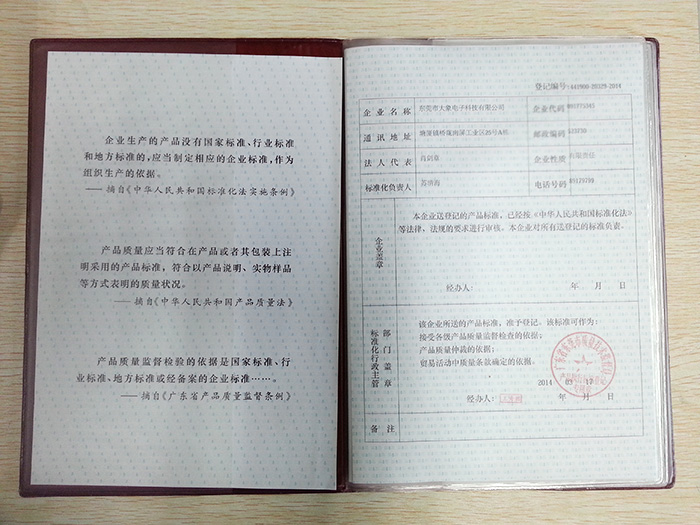 企业生产的产品没有国家标准、行业标准
和地方标准的,应当制定相应的企业标准,作为
组织生产的依据。
——摘自《中华人民共和国标准化法实施条例》
产品质量应当符合在产品或者其包装上注
明采用的产品标准,符合以产品说明、实物样品
等方式表明的质量状况。
——摘自《中华人民共和国产品质量法》
产品质量监督检验的依据是国家标准、行
业标准、地方标准或经备案的企业标准……。
——摘自《广东省产品质量监督条例》
登记编号:441900-20329-2014
企业名称 东莞市大象电子科技有限公司 企业代码
通讯地址 工业区25号A栋 邮政编码
法人代表 企业性质 有限责任
标准化负责人 电话号码
企业盖章
本企业送登记的产品标准,已经按《中华人民共和国标准化法》
等法律,法规的要求进行审核。本企业对所有送登记的标准负责。
经办人: 年 月 日
标准化行政主管部门盖章
该企业所送的产品标准,准予登记。该标准可作为:
接受各级产品质量监督检查的依据;
产品质量仲裁的依据;
贸易活动中质量条款确定的依据。
2014 年 03 月 17 日
经办人:
备注